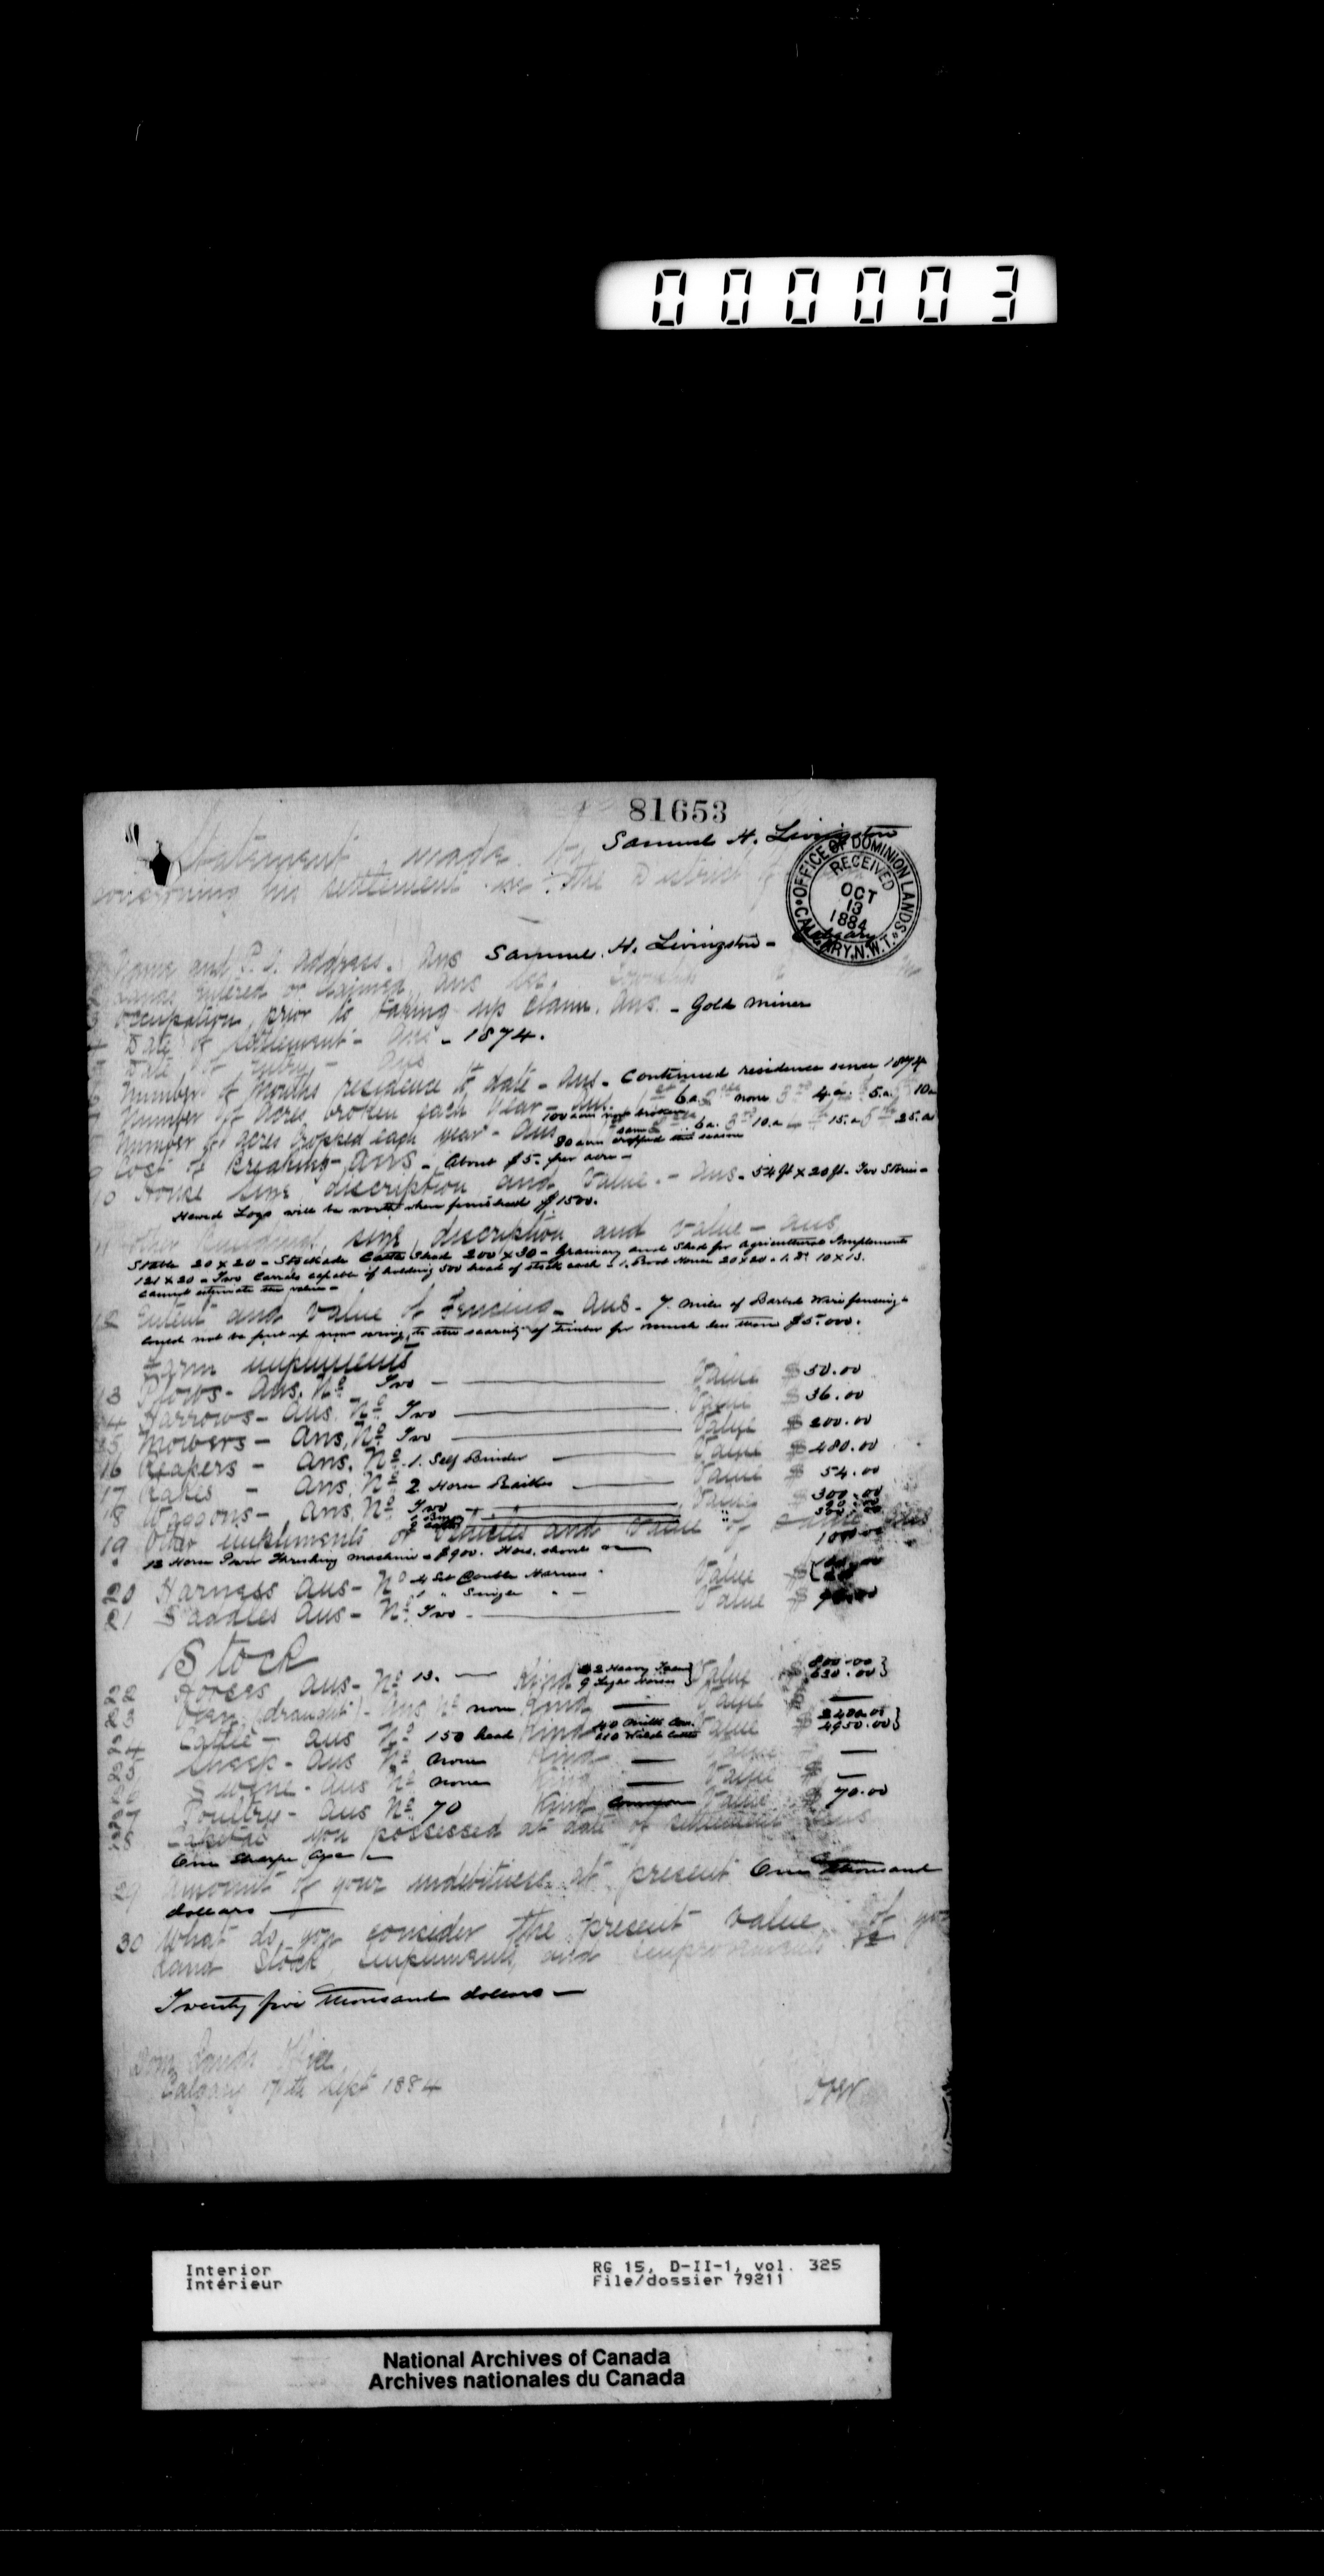 000003
81653
Statement made by Samuel H. Livingston
concerning his settlement in the District of Calgary
OFFICE OF DOMINION LANDS
RECEIVED
OCT
13
1884
CALGARY, N.W.T.
Name and P.O. address. Ans Samuel H. Livingston -
Lands entered or claimed, Ans Sec. Township
3 Occupation prior to taking up claim. Ans. - Gold miner
Date of settlement - Ans - 1874.
Date of entry - Ans
Number of months residence to date - Ans - Continued residence since 1874
Number of acres broken each year - Ans. 1st 6 a. 2nd none 3rd 4.a. 5.a. 10a
100 acres now broken
Number of acres cropped each year - Ans 1st same 2nd 6a. 3rd 10.a 4th 15.a 5th 25.a
80 acres cropped this season
9 Cost of breaking - Ans - About $5. per acre -
10 House size description and value. - Ans - 54 ft x 20 ft. Two Stories -
Hewed Logs will be worth when finished $1500.
11 Other Buildings, size, description and value - Ans
Stable 20 x 20 - Stockade Cattle Shed 200 x 30 - Grainary and Shed for agricultural Implements
121 x 20 - Two Carrals capable of holding 500 head of stock each - 1. Root House 20 x 20 - 1. Do 10 x 13.
Cannot estimate the value -
12 Extent and value of Fencing - Ans - 7. miles of Barbed Wire fencing -
Could not be put up now owing to the scarcity of timber for much less than $5.000.
Farm implements
13 Plows - Ans. No Two - Value $50.00
14 Harrows - Ans. No Two Value $36.00
15 Mowers - Ans. No Two Value $200.00
16 Reapers - Ans. No 1. Self Binder Value $480.00
17 Rakes - Ans. No 2 Horse Raikes Value $54.00
18 Waggons - Ans. No Two Value $300.00
19 Other implements or vehicles and value of same Ans
12 Horse Power Thrashing machine - $900. Hoes, shovels 1000.00
20 Harness Ans - No 4 Set Double Harness Value $
1 " Single "
21 Saddles Ans - No Two - Value $90.00
Stock
22 Horses Ans - No 13. - Kind 2 Heavy Team Value $800.00
9 Light Horses 630.00
23 Oxen (draught) - Ans No none Kind — Value $ —
24 Cattle - Ans No 150 head Kind 40 Milk Cows Value $2400.00
110 Wild Cattle 4950.00
25 Sheep - Ans No None Kind — Value $ —
26 Swine - Ans No none Kind — Value $ —
27 Poultry - Ans No 70 Kind Common Value $70.00
28 Capital you possessed at date of settlement Ans
One
29 Amount of your indebtiness at present One thousand
dollars —
30 What do you consider the present value of your
Land Stock, Implements, and improvements
Twenty five thousand dollars —
Dom Lands Office
Calgary 17th Sept 1884
Interior
Intérieur
RG 15, D-II-1, vol. 325
File/dossier 79211
National Archives of Canada
Archives nationales du Canada